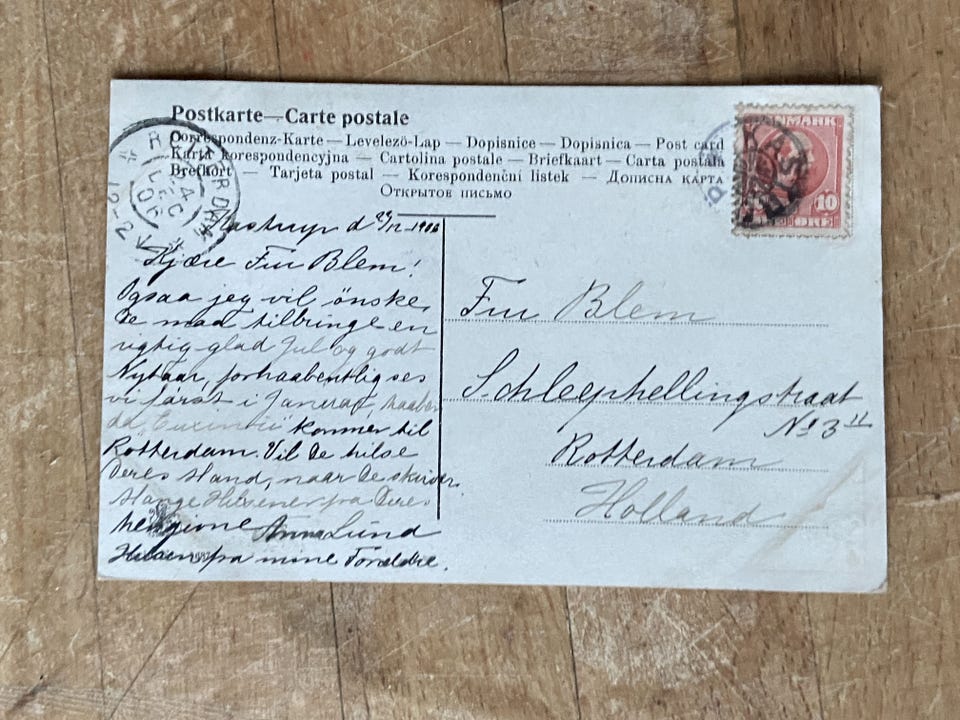 Postkarte — Carte postale
Correspondenz-Karte — Levelezö-Lap — Dopisnice — Dopisnica — Post card
Karta korespondencyjna — Cartolina postale — Briefkaart — Carta postala
Brefkort — Tarjeta postal — Korespondenční listek — Дописна карта
Открытое письмо
ROTTERDAM
24
DEC
06
12-2 V
KASTRUP
DANMARK
10
ØRE
Kastrup d 22/12-1906
Kjære Fru Blem!
Ogsaa jeg vil önske,
De maa tilbringe en
rigtig glad Jul og godt
Nytaar, forhaabentlig ses
vi först i Januar,
kommer til
Rotterdam. Vil De hilse
Deres Mand, naar De skriver.
Mange Hilsener fra Deres
hengivne Anna Lund
Hilsen fra mine Forældre.
Fru Blem
Schleephellingstraat
No 3 II
Rotterdam
Holland